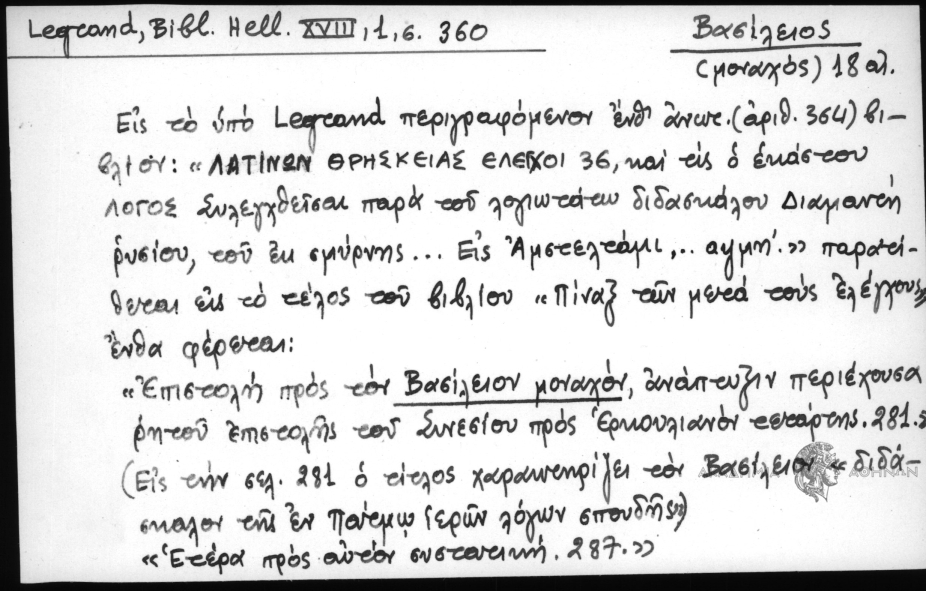 Legrand, Bibl. Hell. XVIII, 1, σ. 360
Βασίλειος
(μοναχός) 18 αἰ.
Εἰς τὸ ὑπὸ Legrand περιγραφόμενον ἔνθ' ἄνωτ. (ἀριθ. 364) βι-
βλίον: «ΛΑΤΙΝΩΝ ΘΡΗΣΚΕΙΑΣ ΕΛΕΓΧΟΙ 36, καὶ εἰς ὁ ἑκάστου
ΛΟΓΟΣ Συλεγχθεῖσαι παρὰ τοῦ λογιωτάτου διδασκάλου Διαμαντῆ
ῥυσίου, τοῦ ἐκ σμύρνης... Εἰς Ἀμστελτάμι,.. αψμη΄.» παρατί-
θεται εἰς τὸ τέλος τοῦ βιβλίου «Πίναξ τῶν μετὰ τοὺς ἐλέγχους»
ἔνθα φέρεται:
«Ἐπιστολὴ πρὸς τὸν Βασίλειον μοναχὸν, ἀνάπτυξιν περιέχουσα
ῥητοῦ ἐπιστολῆς τοῦ Συνεσίου πρὸς Ἑρκουλιανὸν τετάρτης. 281.»
(Εἰς τὴν σελ. 281 ὁ τίτλος χαρακτηρίζει τὸν Βασίλειον «διδά-
σκαλον τῆς ἐν Πατέμῳ ἱερῶν λόγων σπουδῆς»)
«Ἑτέρα πρὸς αὐτὸν συστατική. 287.»
ΑΘΗΝΩΝ